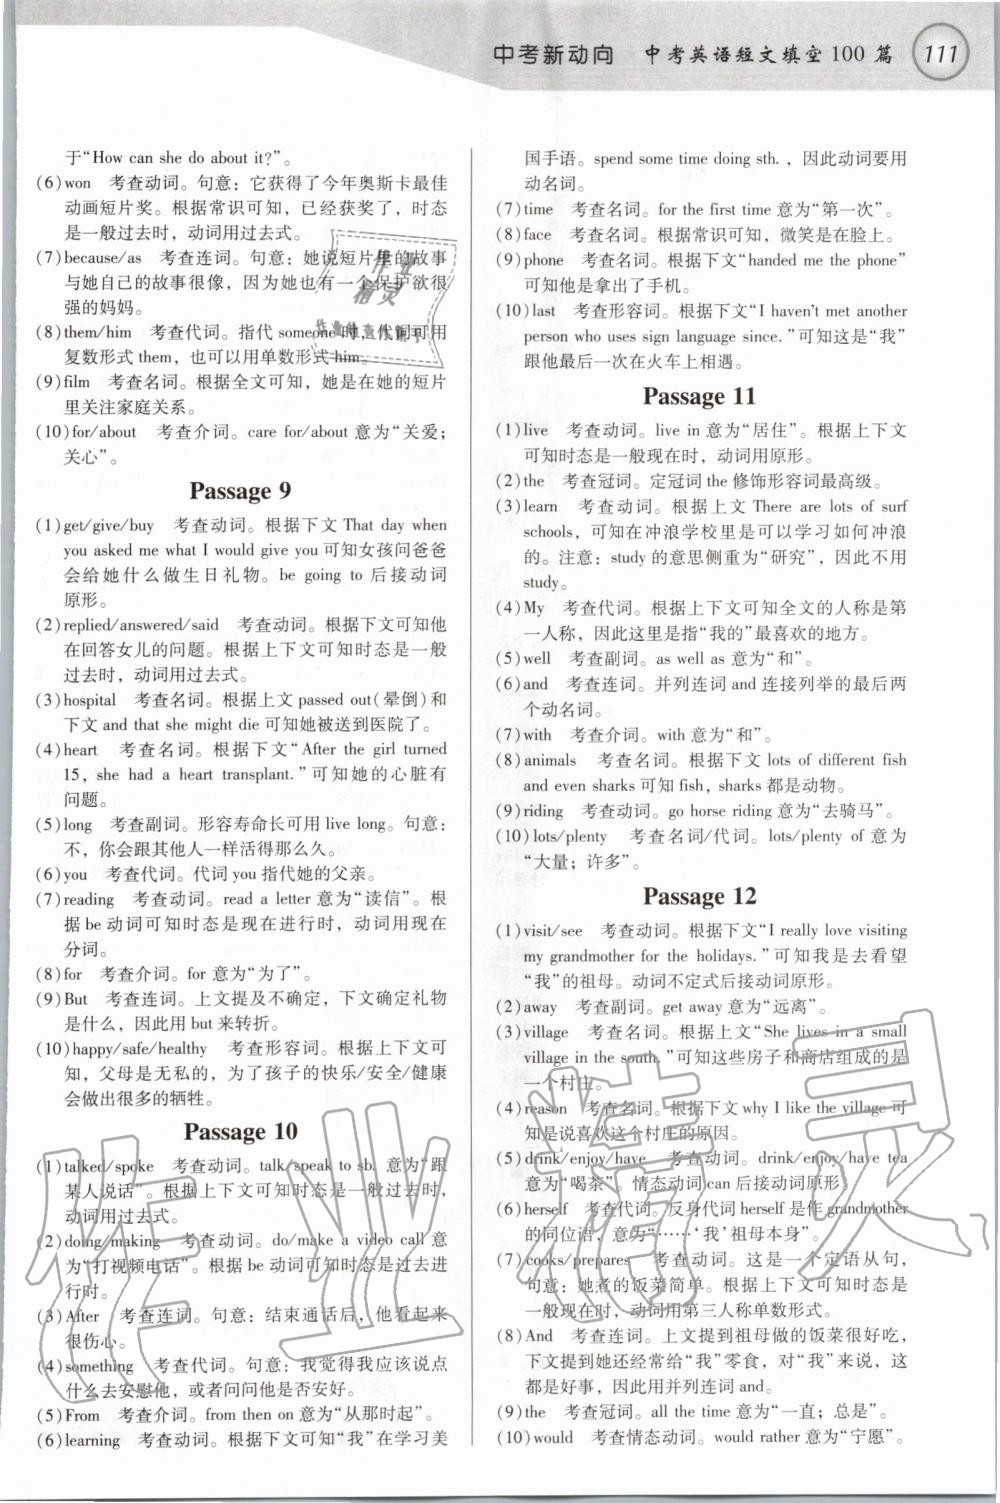 中考新动向 中考英语短文填空 100 篇 111
于“How can she do about it?”。
(6)won 考查动词。句意：它获得了今年奥斯卡最佳
动画短片奖。根据常识可知，已经获奖了，时态
是一般过去时，动词用过去式。
(7)because/as 考查连词。句意：她说短片里的故事
与她自己的故事很像，因为她也有一个保护欲很
强的妈妈。
(8)them/him 考查代词。指代 someone 时，代词可用
复数形式 them，也可以用单数形式 him。
(9)film 考查名词。根据全文可知，她是在她的短片
里关注家庭关系。
(10)for/about 考查介词。care for/about 意为“关爱；
关心”。
Passage 9
(1)get/give/buy 考查动词。根据下文 That day when
you asked me what I would give you 可知女孩问爸爸
会给她什么做生日礼物。be going to 后接动词
原形。
(2)replied/answered/said 考查动词。根据下文可知他
在回答女儿的问题。根据上下文可知时态是一般
过去时，动词用过去式。
(3)hospital 考查名词。根据上文 passed out(晕倒)和
下文 and that she might die 可知她被送到医院了。
(4)heart 考查名词。根据下文“After the girl turned
15, she had a heart transplant.”可知她的心脏有
问题。
(5)long 考查副词。形容寿命长可用 live long。句意：
不，你会跟其他人一样活得那么久。
(6)you 考查代词。代词 you 指代她的父亲。
(7)reading 考查动词。read a letter 意为“读信”。根
据 be 动词可知时态是现在进行时，动词用现在
分词。
(8)for 考查介词。for 意为“为了”。
(9)But 考查连词。上文提及不确定，下文确定礼物
是什么，因此用 but 来转折。
(10)happy/safe/healthy 考查形容词。根据上下文可
知，父母是无私的，为了孩子的快乐/安全/健康
会做出很多的牺牲。
Passage 10
(1)talked/spoke 考查动词。talk/speak to sb. 意为“跟
某人说话”。根据上下文可知时态是一般过去时，
动词用过去式。
(2)doing/making 考查动词。do/make a video call 意
为“打视频电话”。根据 be 动词可知时态是过去进
行时。
(3)After 考查连词。句意：结束通话后，他看起来
很伤心。
(4)something 考查代词。句意：我觉得我应该说点
什么去安慰他，或者问问他是否安好。
(5)From 考查介词。from then on 意为“从那时起”。
(6)learning 考查动词。根据下文可知“我”在学习美
国手语。spend some time doing sth.，因此动词要用
动名词。
(7)time 考查名词。for the first time 意为“第一次”。
(8)face 考查名词。根据常识可知，微笑是在脸上。
(9)phone 考查名词。根据下文“handed me the phone”
可知他是拿出了手机。
(10)last 考查形容词。根据下文“I haven't met another
person who uses sign language since.”可知这是“我”
跟他最后一次在火车上相遇。
Passage 11
(1)live 考查动词。live in 意为“居住”。根据上下文
可知时态是一般现在时，动词用原形。
(2)the 考查冠词。定冠词 the 修饰形容词最高级。
(3)learn 考查动词。根据上文 There are lots of surf
schools，可知在冲浪学校里是可以学习如何冲浪
的。注意：study 的意思侧重为“研究”，因此不用
study。
(4)My 考查代词。根据上下文可知全文的人称是第
一人称，因此这里是指“我的”最喜欢的地方。
(5)well 考查副词。as well as 意为“和”。
(6)and 考查连词。并列连词 and 连接列举的最后两
个动名词。
(7)with 考查介词。with 意为“和”。
(8)animals 考查名词。根据下文 lots of different fish
and even sharks 可知 fish, sharks 都是动物。
(9)riding 考查动词。go horse riding 意为“去骑马”。
(10)lots/plenty 考查名词/代词。lots/plenty of 意为
“大量；许多”。
Passage 12
(1)visit/see 考查动词。根据下文“I really love visiting
my grandmother for the holidays.”可知我是去看望
“我”的祖母。动词不定式后接动词原形。
(2)away 考查副词。get away 意为“远离”。
(3)village 考查名词。根据上文“She lives in a small
village in the south.”可知这些房子和商店组成的是
一个村庄。
(4)reason 考查名词。根据下文 why I like the village 可
知是说喜欢这个村庄的原因。
(5)drink/enjoy/have 考查动词。drink/enjoy/have tea
意为“喝茶”，情态动词 can 后接动词原形。
(6)herself 考查代词。反身代词 herself 是作 grandmother
的同位语，意为“……‘我’祖母本身”。
(7)cooks/prepares 考查动词。这是一个定语从句，
句意：她煮的饭菜简单。根据上下文可知时态是
一般现在时，动词用第三人称单数形式。
(8)And 考查连词。上文提到祖母做的饭菜很好吃，
下文提到她还经常给“我”零食，对“我”来说，这
都是好事，因此用并列连词 and。
(9)the 考查冠词。all the time 意为“一直；总是”。
(10)would 考查情态动词。would rather 意为“宁愿”。
作业精灵